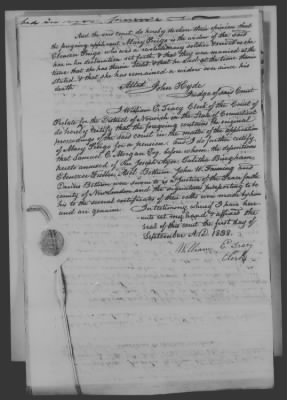 And the said court do hereby declare their opinion that
the foregoing applicant Mary is the widow of the said
Ebenezer who was a revolutionary soldier
in her declaration set forth & that they were married at the
time that she has stated & that he died at the time therein
stated & that she has remained a widow ever since his
death. Attest John Hyde
Judge of said Court
I William C. Tracy Clerk of the Court of
Probate for the District of Norwich in the State of Connecticut
do hereby certify that the foregoing contains the original
proceedings of the said court in the matter of the application
of Mary for a pension. and I do further certify
that Samuel C. Morgan Esq. before whom the depositions
hereto annexed of Joseph Bingham
Ebenezer Abel Bottom John W. Fanning and
Darius Bottom were sworn to is a Justice of the Peace for the
county of New London and the signatures purporting to
be his to the several certificates of their oaths
and are genuine. In testimony whereof I have here-
unto set my hand & affixed the
seal of this court the first day of
September A.D. 1838.
William C. Tracy
Clerk